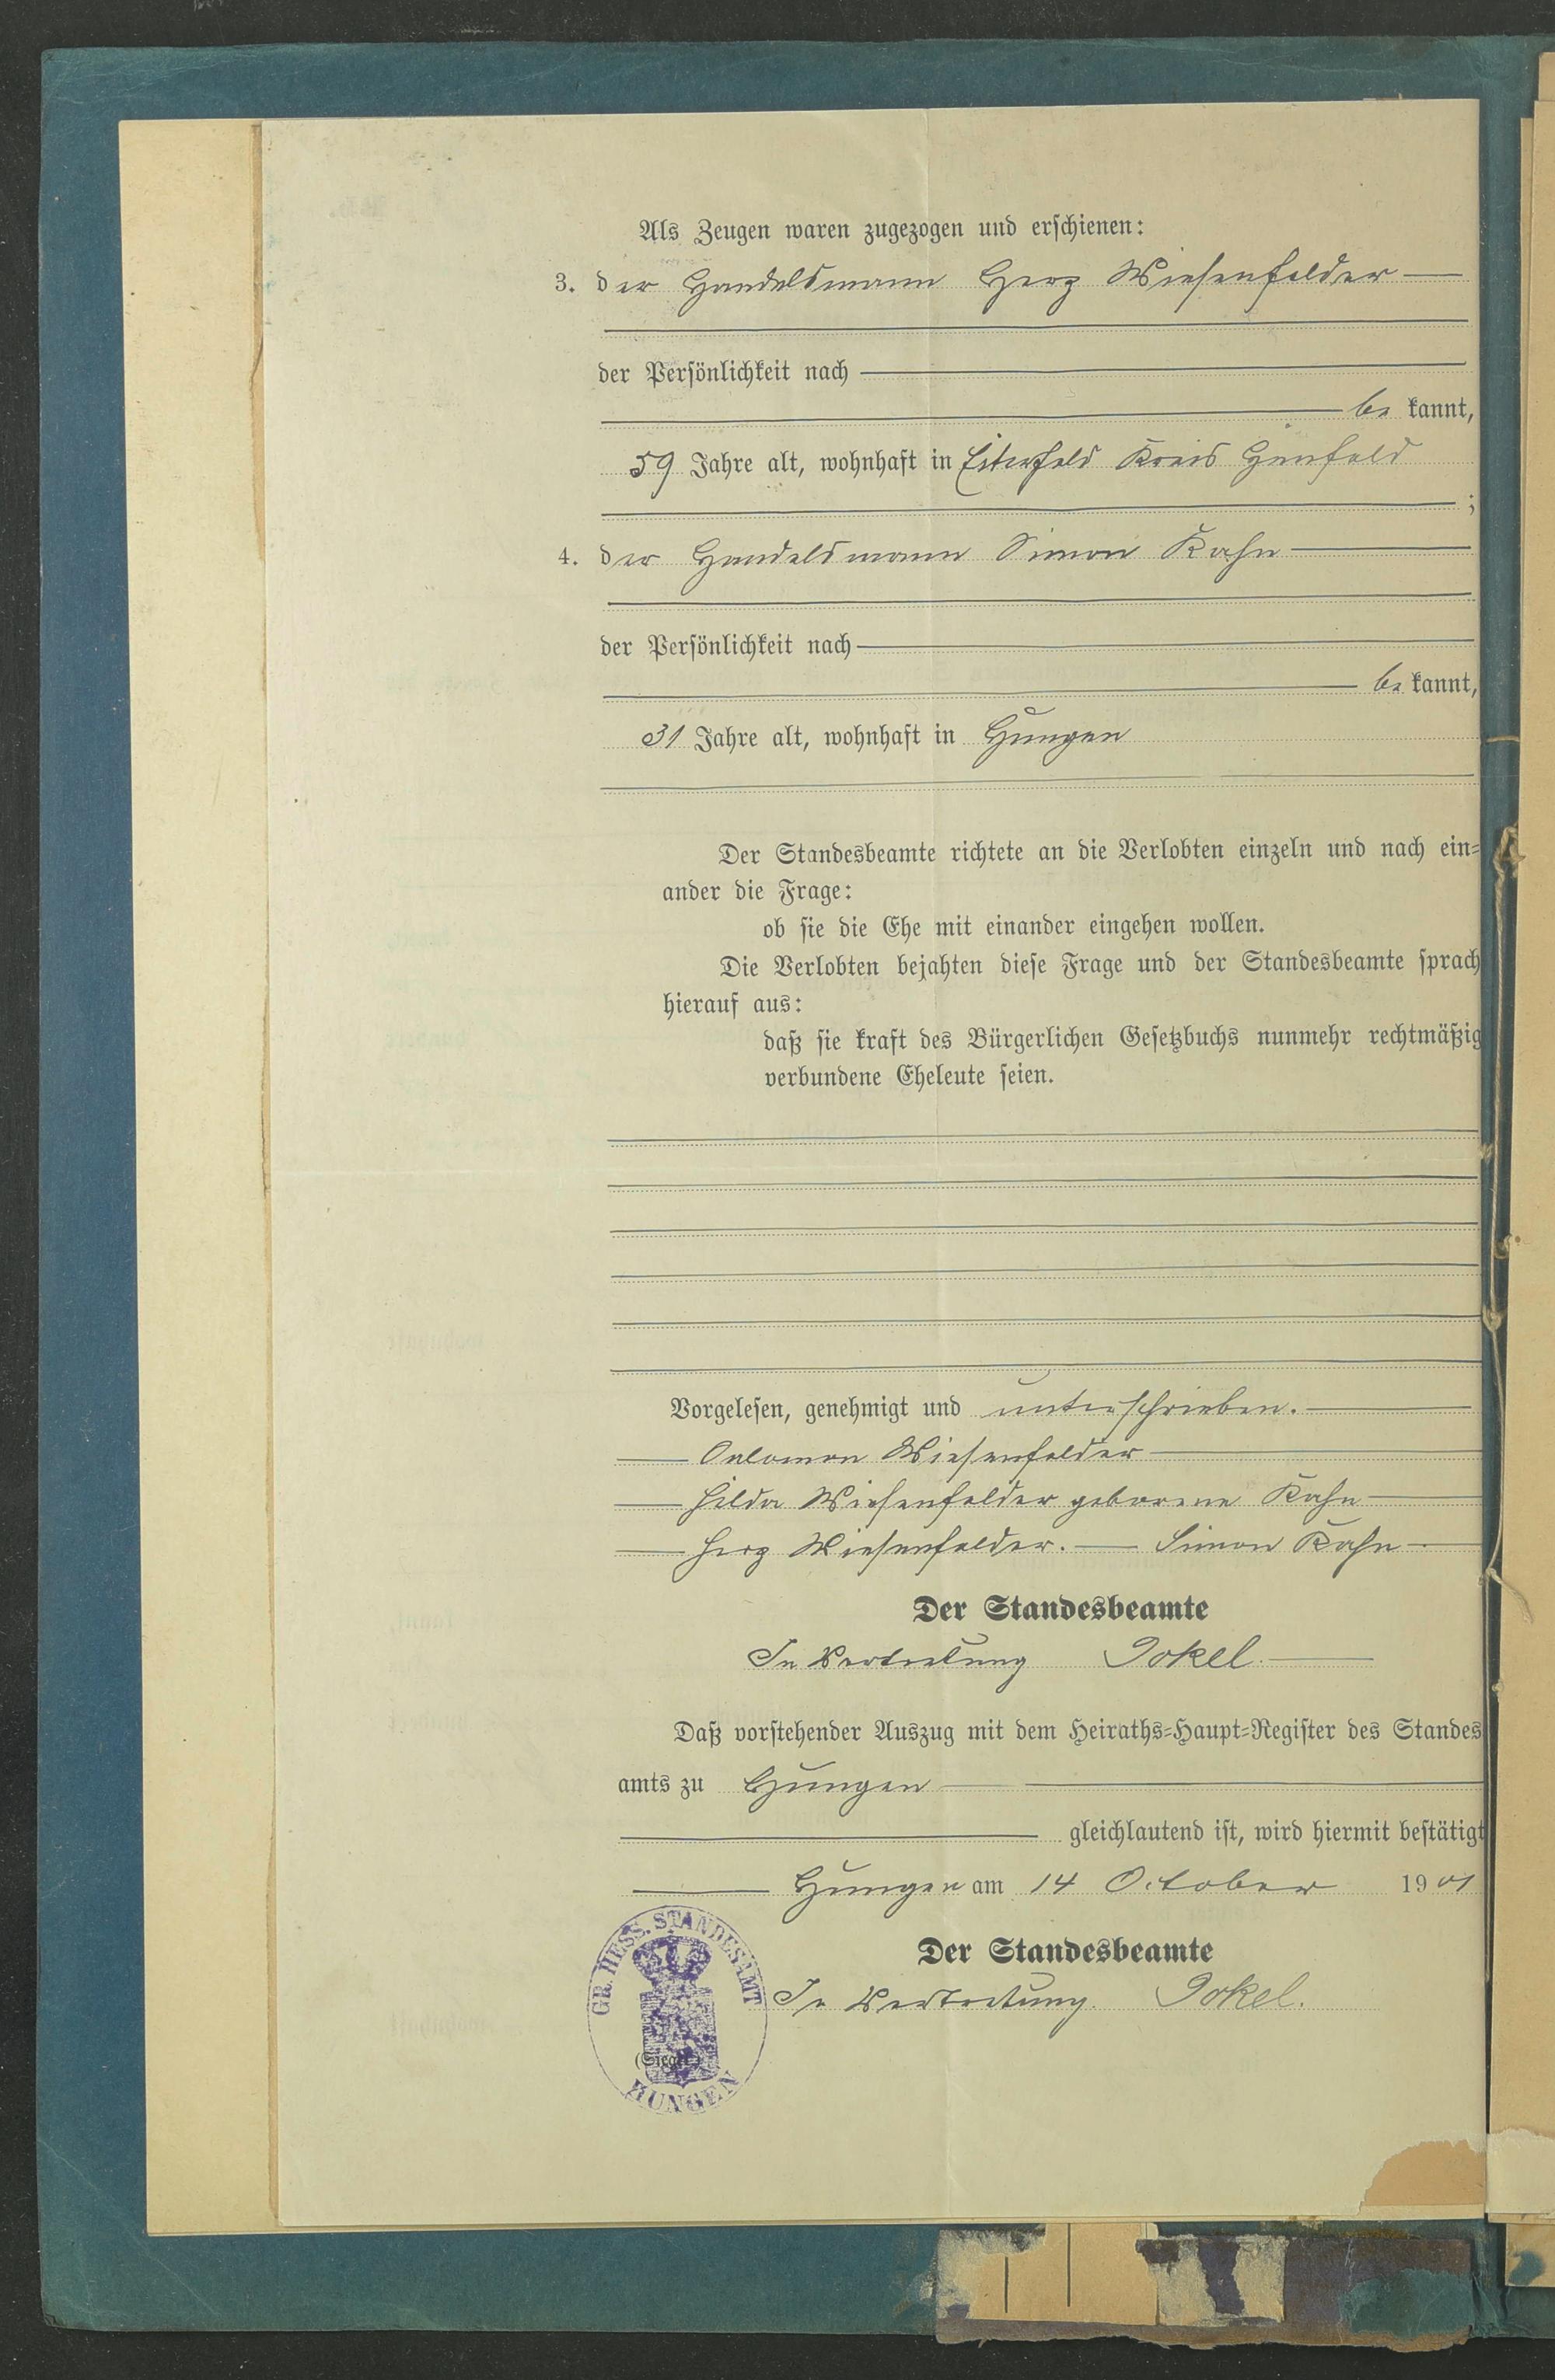 Als Zeugen waren zugezogen und erschienen:
3. der Handelsmann Herz Wiesenfelder
der Persönlichkeit nach
be kannt,
59 Jahre alt, wohnhaft in Eiterfeld Kreis Hünfeld
;
4. der Handelsmann Simon Kahn
der Persönlichkeit nach
be kannt,
31 Jahre alt, wohnhaft in Hungen
Der Standesbeamte richtete an die Verlobten einzeln und nach ein=
ander die Frage:
ob sie die Ehe mit einander eingehen wollen.
Die Verlobten bejahten diese Frage und der Standesbeamte sprach
hierauf aus:
daß sie kraft des Bürgerlichen Gesetzbuchs nunmehr rechtmäßig
verbundene Eheleute seien.
Vorgelesen, genehmigt und unterschrieben.
Salomon Wiesenfelder
Hilda Wiesenfelder geborene Kahn
Herz Wiesenfelder. — Simon Kahn
Der Standesbeamte
In Vertretung Jokel.
Daß vorstehender Auszug mit dem Heiraths=Haupt=Register des Standes
amts zu Hungen
gleichlautend ist, wird hiermit bestätigt
Hungen am 14 October 1901
Der Standesbeamte
In Vertretung. Jokel.
GR. HESS. STANDESAMT
(Siegel)
HUNGEN